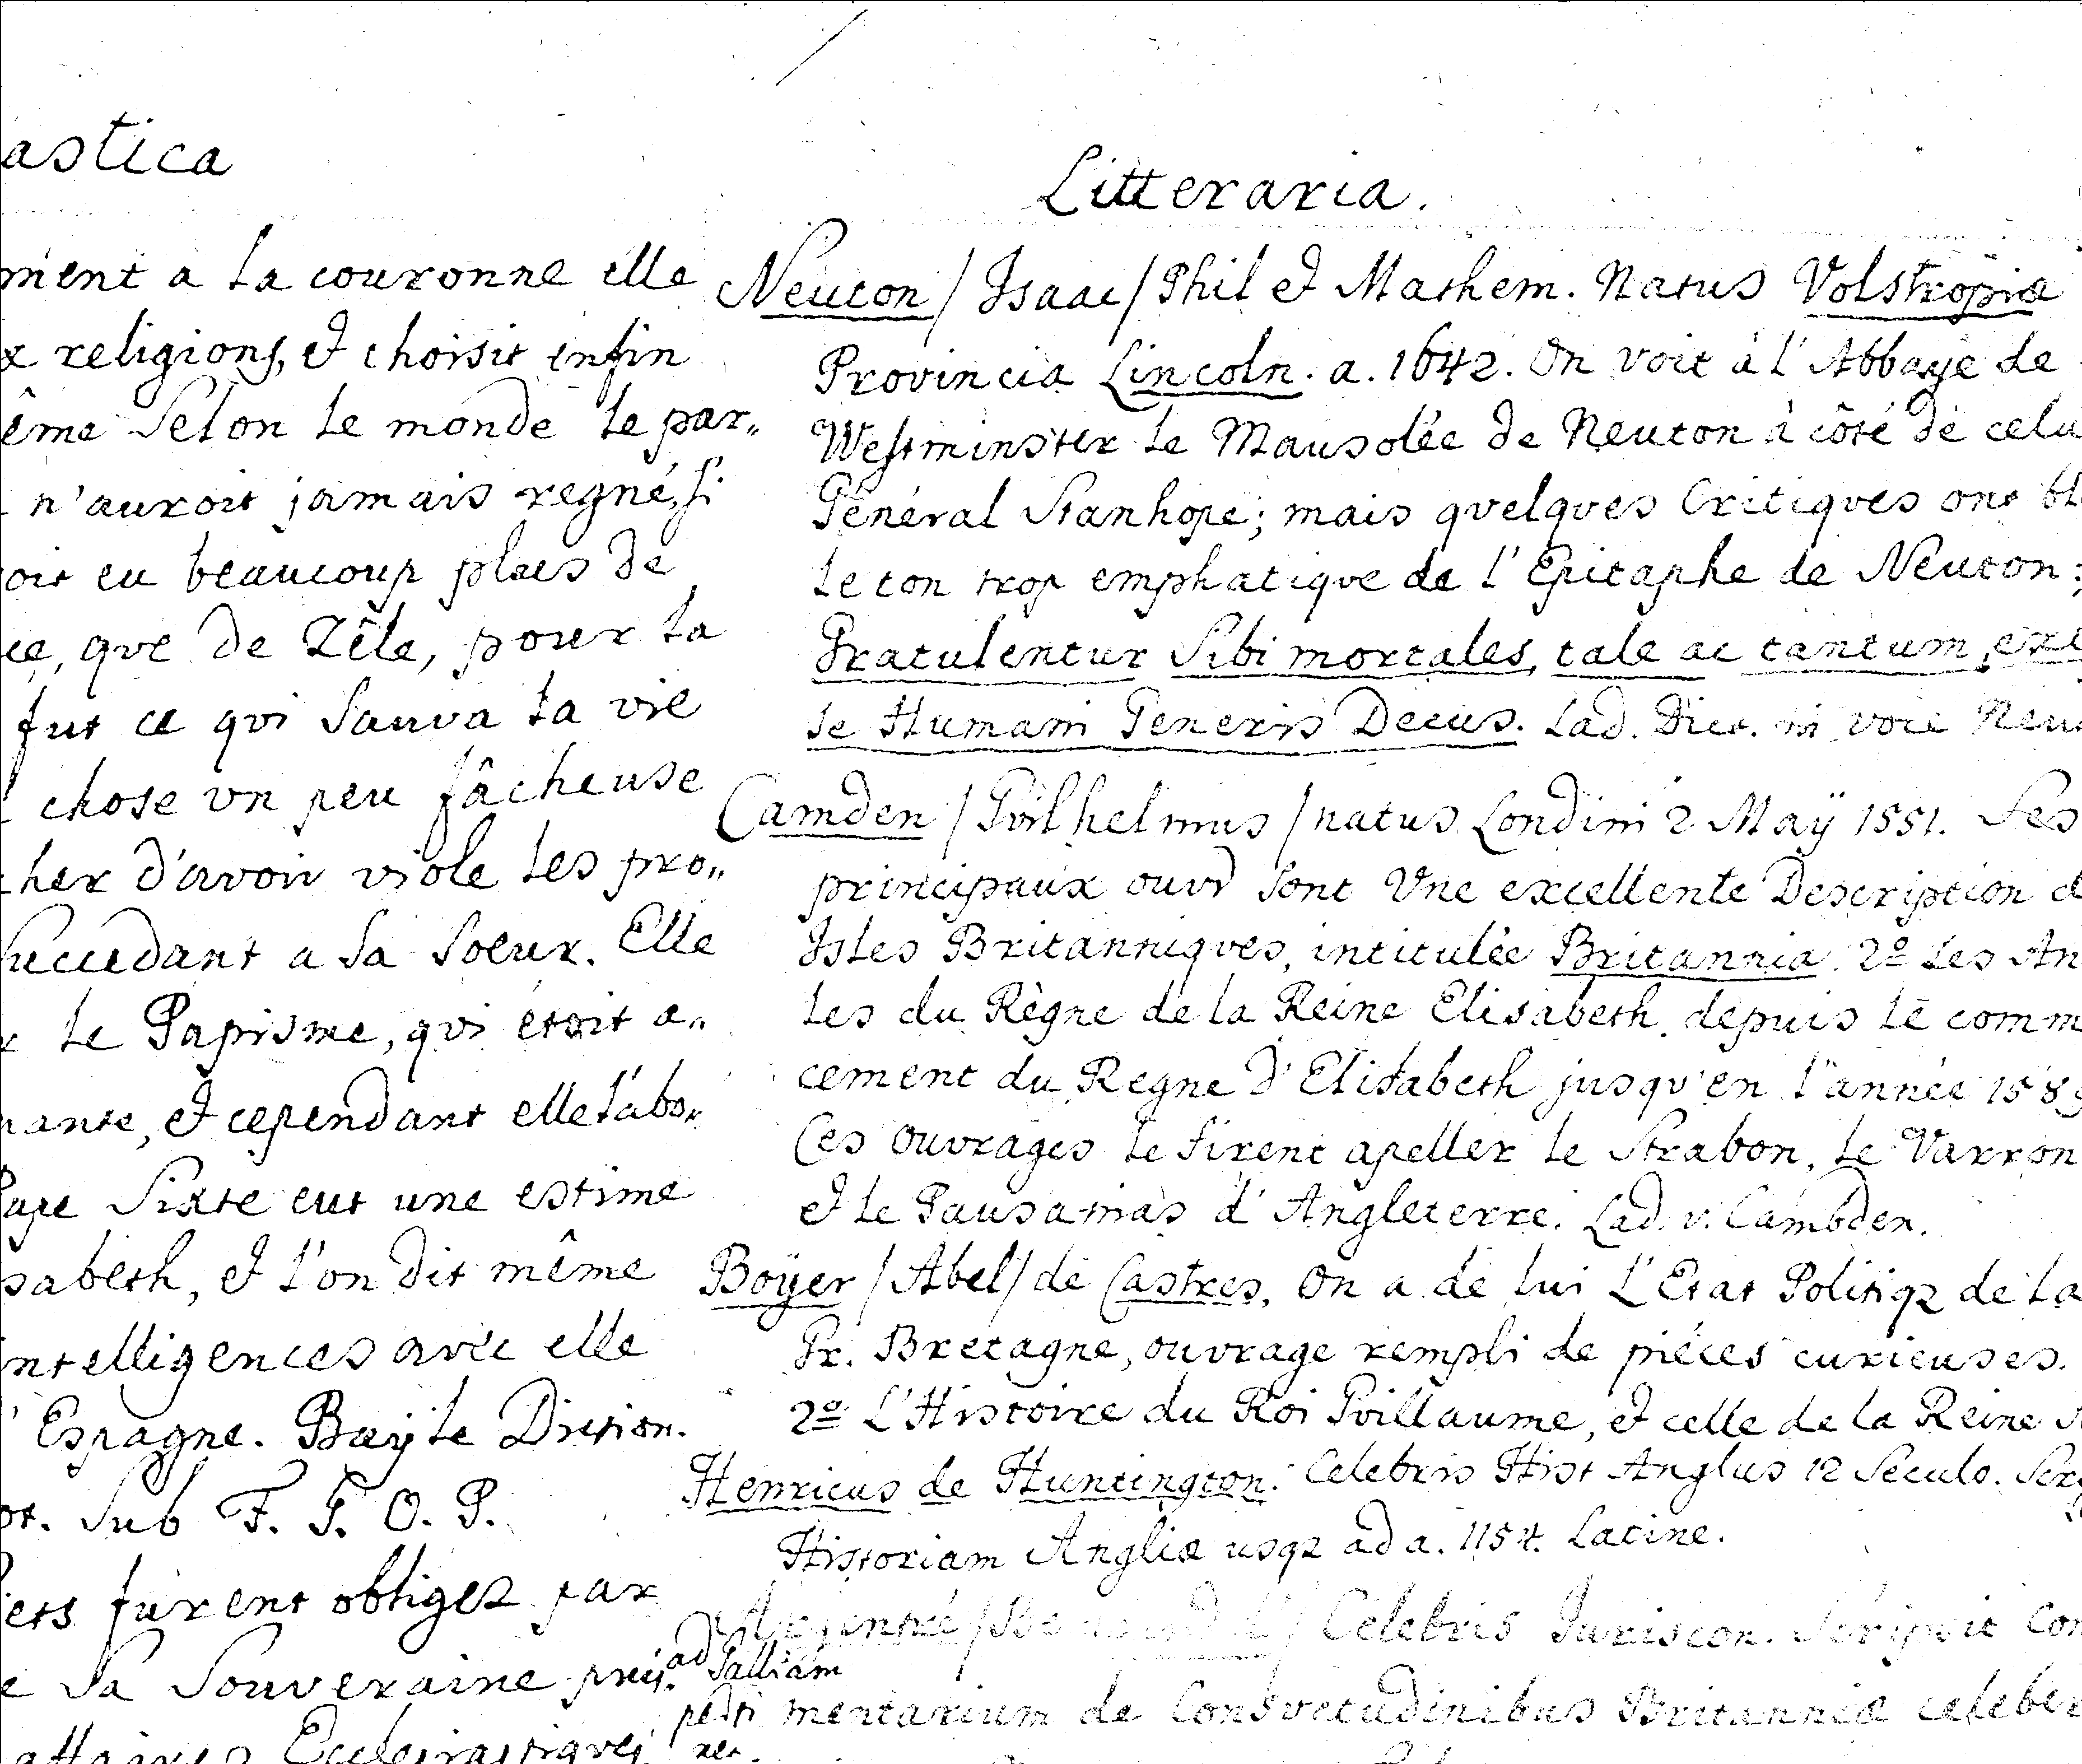 astica
ment a la couronne elle
x religions, et choisit enfin
ême Selon le monde le par„
n'auroit jamais regné, si
oit eu beaucoup plus de
ce, que de Zêle, pour la
fut ce qui Sauva la vie
chose un peu fâcheuse
cher d'avoir viole les pro„
Succedant a Sa Soeur. Elle
le Papisme, qui étoit a„
nante, et cependant elle l'abo„
Pape Sixte eut une estime
sabeth, et l'on dit même
intelligences avec elle
Espagne. Bayle Diction.
ot. Sub F. F. O. P.
iers furent obligez par
e Sa Souveraine prei„
affaires Ecclesiastiques
Litteraria.
Neuton / Isaac / Phil et Mathem. Natus Volstropiæ
Provincia Lincoln. a. 1642. On voit à l'Abbaye de
Westminster le Mausolée de Neuton à côté de celu
Général Stanhope; mais quelques Critiques ont bl
le ton trop emphatique de l'Epitaphe de Neuton:
Gratulentur Sibi mortales, tale ac tantum, exti
se Humani Generis Decus. Lad. Dict. in voce Neu
Camden / Guilhelmus / natus Londini 2 Maÿ 1551. Ses
principaux ouvr Sont Une excellente Description d
Isles Britanniques, intitulée Britannia. 2º Les An
les du Règne de la Reine Elisabeth, depuis le comm
cement du Regne d'Elisabeth jusqu'en l'année 1589
Ces ouvrages le firent apeller le Strabon, le Varron
et le Pausanias d'Angleterre. Lad. v. Cambden.
Boÿer / Abel / de Castres, On a de lui L'Etat Politiqz de la
Gr. Bretagne, ouvrage rempli de piéces curieuses.
2º L'Histoire du Roi Guillaume, et celle de la Reine A
Henricus de Huntington. Celebris Hist Anglus 12 Seculo. Scr
Historiam Angliæ usqz ad a. 1154. Latine.
Argentré / / Celebris Juriscon. Scripsit Com
ad Galliam
pertinet.
mentarium de Consvetudinibus Britanniæ celeber